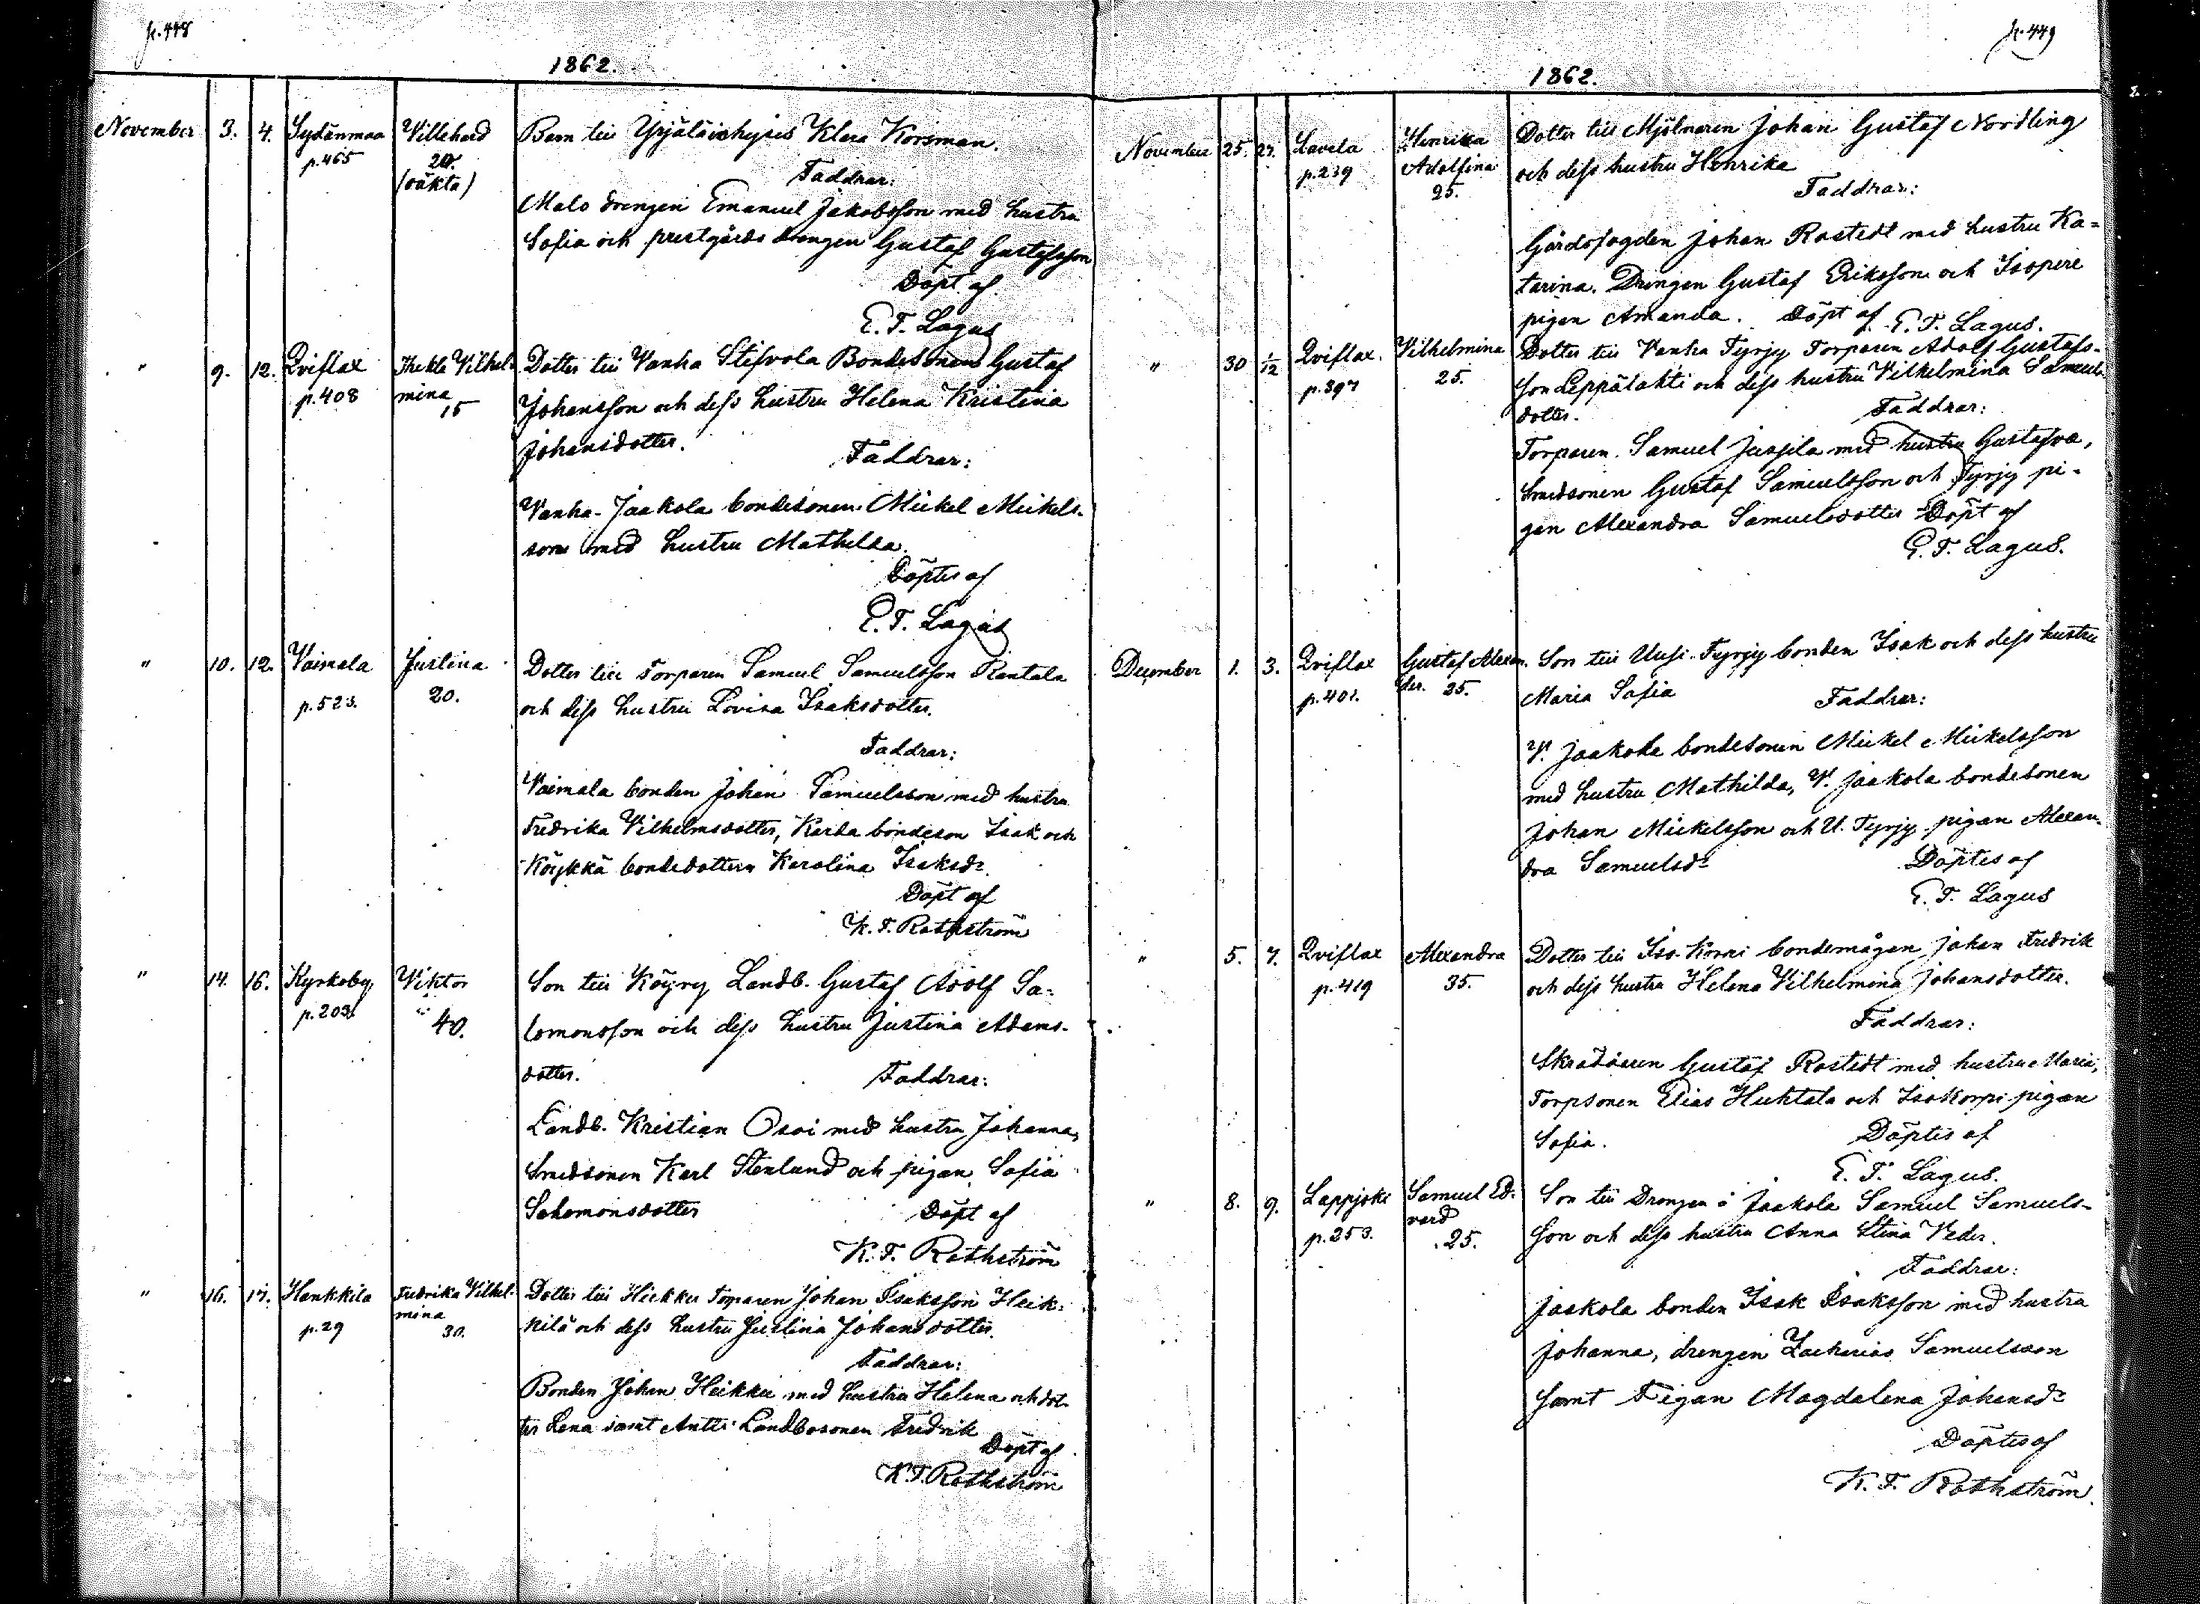 p. 448
1862.
November 3. 4. Sydänmaa Villehard Barn till Yrjälä inhyses Klara Korsman.
p. 465 20. (oäkta)
Faddrar:
Malo drengen Emanuel Jakobsson med hustru
Sofia och prestgårds drengen Gustaf Gustafsson
Döpt af
E. T. Lagus
" 9. 12. Qviflax Thekla Vilhel- Dotter till Vanha Stifvola Bondesonen Gustaf
p. 408 mina 15 Johansson och dess hustru Helena Kristina
Johansdotter.
Faddrar:
Vanha-Jaakola bondesonen Mickel Mickels-
son med hustru Mathilda.
Döptes af
E. T. Lagus
" 10. 12. Voimala Justina Dotter till Torparen Samuel Samuelsson Rantala
p. 523. 20. och dess hustru Lovisa Isaksdotter.
Faddrar:
Voimala bonden Johan Samuelsson med hustru
Fredrika Vilhelmsdotter, Karla bondeson Isak och
Köykkä bondedottern Karolina Isaksdr
Döpt af
K. F. Rothström
" 14. 16. Kyrkoby Viktor Son till Köyry Landb. Gustaf Adolf Sa-
p. 203. 40. lomonsson och dess hustru Justina Adams-
dotter.
Faddrar:
Landb. Kristian Ossi med hustru Johanna,
Smedsonen Karl Stenlund och pigan Sofia
Salomonsdotter
Döpt af
K. F. Rothström
" 16. 17. Hankkila Fredrika Vilhel- Dotter till Heikku Torparen Johan Isaksson Heik-
p. 29 mina 30. kilä och dess hustru Justina Johansdotter.
Faddrar:
Bonden Johan Heikku med hustru Helena och dot-
ter Lena samt Antti Landbosonen Fredrik
Döpt af
K. F. Rothström
p. 449
1862.
November 25. 27. Lavila Henrika Dotter till Mjölnaren Johan Gustaf Nordling
p. 239 Adolfina 25. och dess hustru Henrika
Faddrar:
Gårdsfogden Johan Rostedt med hustru Ka-
tarina. Drengen Gustaf Eriksson och Isopere
pigan Amanda. Döpt af E. T. Lagus.
" 30 1/12 Qviflax. Vilhelmina Dotter till Vanha Tyrjy Torparen Adolf Gustafs-
p. 397 25. son Leppälahti och dess hustru Vilhelmina Samuels-
dotter. Faddrar:
Torparen Samuel Jussila med hustru Gustafva,
Smedsonen Gustaf Samuelsson och Tyrjy pi-
gan Alexandra Samuelsdotter Döpt af
E. T. Lagus.
December 1. 3. Qviflax Gustaf Alexan- Son till Uusi-Tyrjy bonden Isak och dess hustru
p. 401. der. 25. Maria Sofia Faddrar:
V. Jaakola bondesonen Mickel Mickelsson
med hustru Mathilda, V. Jaakola bondesonen
Johan Mickelsson och U. Tyrjy pigan Alexan-
dra Samuelsdr Döptes af
E. T. Lagus
" 5. 7. Qviflax Alexandra Dotter till Iso-Korri bondemågen Johan Fredrik
p. 419 35. och dess hustru Helena Vilhelmina Johansdotter.
Faddrar:
Skräddaren Gustaf Rostedt med hustru Maria,
Torpsonen Elias Huhtala och Isokorpi pigan
Sofia. Döptes af
E. T. Lagus.
" 8. 9. Lappjoki Samuel Ed- Son till Drengen å Jaakola Samuel Samuels-
p. 253. vard 25. son och dess hustru Anna Stina Veder.
Faddrar:
Jaakola bonden Isak Isaksson med hustru
Johanna, drengen Zacharias Samuelsson
samt Pigan Magdalena Johansdr
Döptes af
K. F. Rothström.